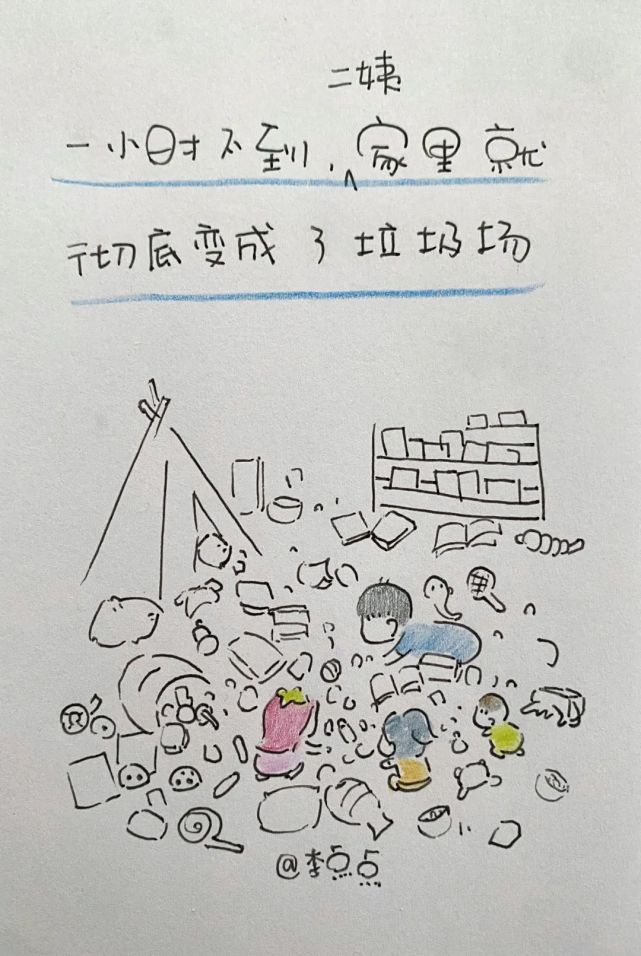 二姨
一小时不到，家里就
彻底变成了垃圾场
@李点点